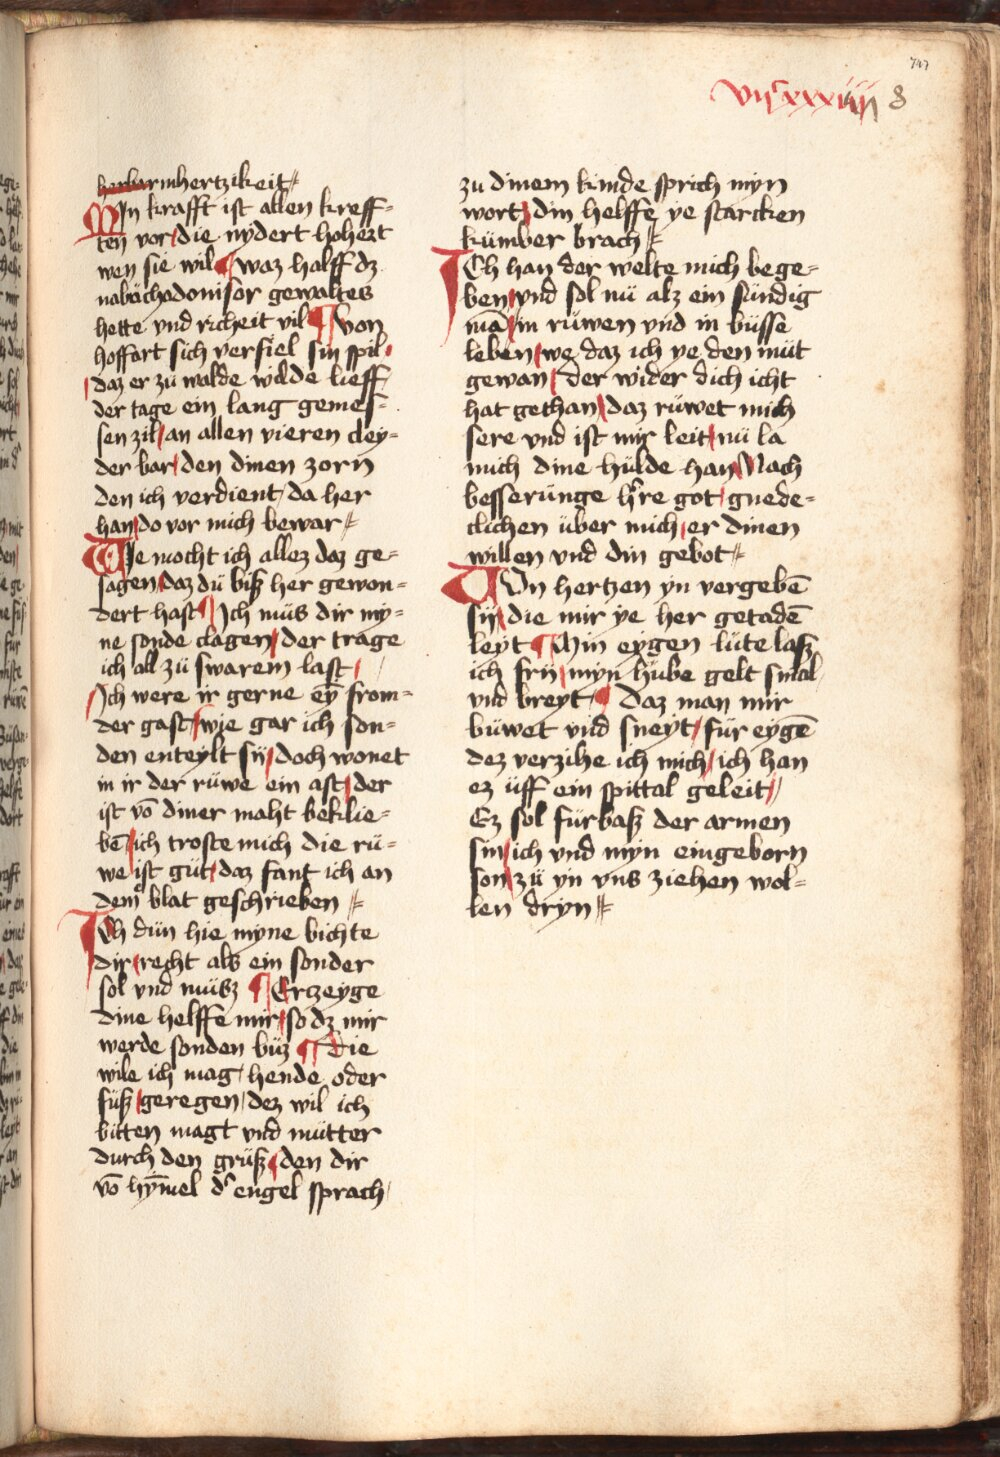 747
vijc xxxiiij 8
herbarmhertzikeit
Din krafft ist allen kreff-
ten vor die nydert hohezt
wen sie wil waz halff dz
nabüchodonisor gewaltes
hette vnd richeit vil von
hoffart sich verfiel sin spil
daz er zü walde wilde lieff
der tage ein lang gemes-
sen zil an allen vieren cley-
der bar den dinen zorn
den ich verdient da her
han do vor mich bewar
Wie mocht ich allez daz ge-
sagen daz dü biß her gewon-
dert hast Ich müs dir my-
ne sonde clagen der trage
ich all zü swarem last
Ich were ir gerne ey̅ from-
der gast wie gar ich son-
den enteylt sij doch wonet
in ir der rüwe ein ast der
ist vo̅ diner maht beklie-
be̅ ich troste mich die rü-
we ist güt daz fant ich an
dem blat geschrieben
Ich dün hie myne bichte
dir recht als ein sonder
sol vnd müsz Erczeyge
dine helffe mir so dz mir
werde sonden büz Die
wile ich mag hende oder
füß geregen dez wil ich
bitten magt vnd mütter
durch den grüß den dir
vo̅ hy̅mel d' engel sprach
zu dinem kinde sprich myn
wort din helffe ye starcken
kümber brach
Ich han der welte mich bege-
ben vnd sol nü alz ein sündig
ma̅ in rüwen vnd in büsse
leben we daz ich ye den müt
gewan der wider dich icht
hat gethan daz rüwet mich
sere vnd ist mir leit nü la
mich dine hülde han Nach
besserünge h're got gnede-
clichen über mich er dinen
willen vnd din gebot
Von hertzen yn vergebe̅
sij die mir ye her getade̅
leyt Min eygen lüte lasz
ich frij myn hübe gelt smal
vnd breyt daz man mir
büwet vnd sneyt für eyge̅
dez verzihe ich mich ich han
ez üff ein spittal geleit
Ez sol fürbaß der armen
sin ich vnd myn eingeborn
son zü yn vns ziehen wol-
len dryn